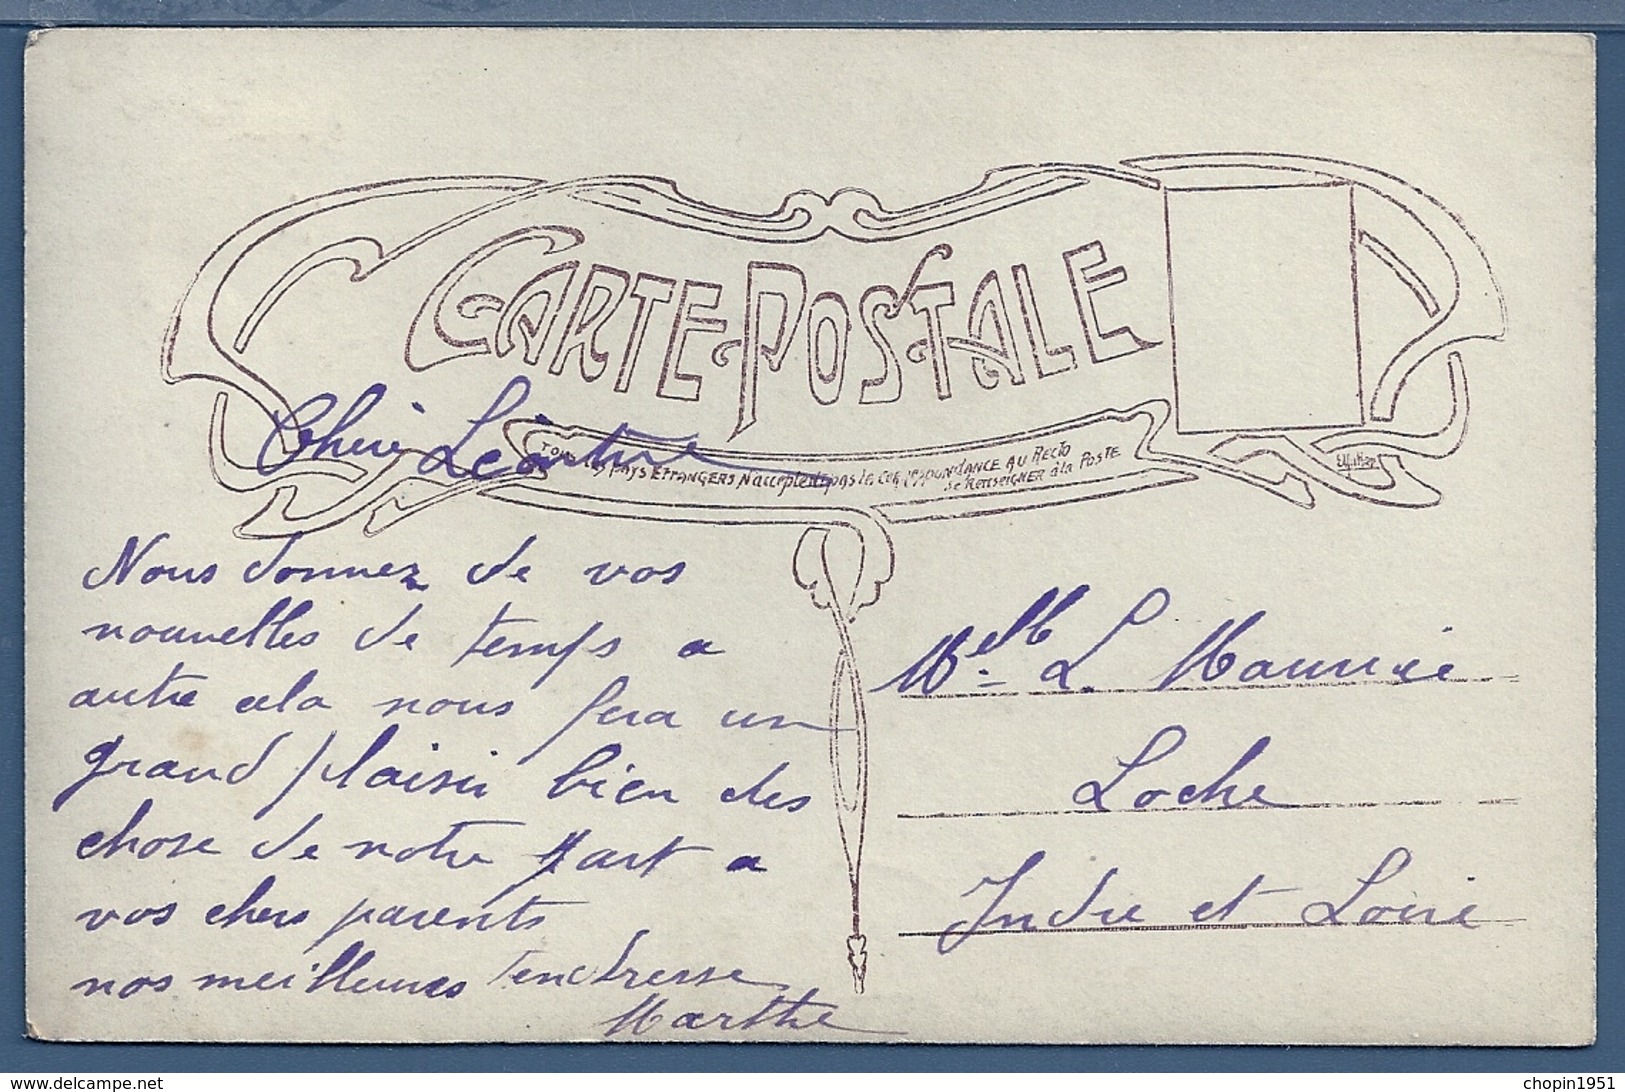 CARTE POSTALE
Tous les pays ETRANGERS N'acceptent pas la CORRESPONDANCE AU RECTO
se RENSEIGNER à la POSTE
Cherie
Nous donnez de vos
nouvelles de temps a
autre cela nous fera un
grand plaisir bien des
chose de notre part a
vos chers parents
nos meilleures tendresse
Marthe
Melle L. Maurice
Loche
Indre et Loire
chopin1951